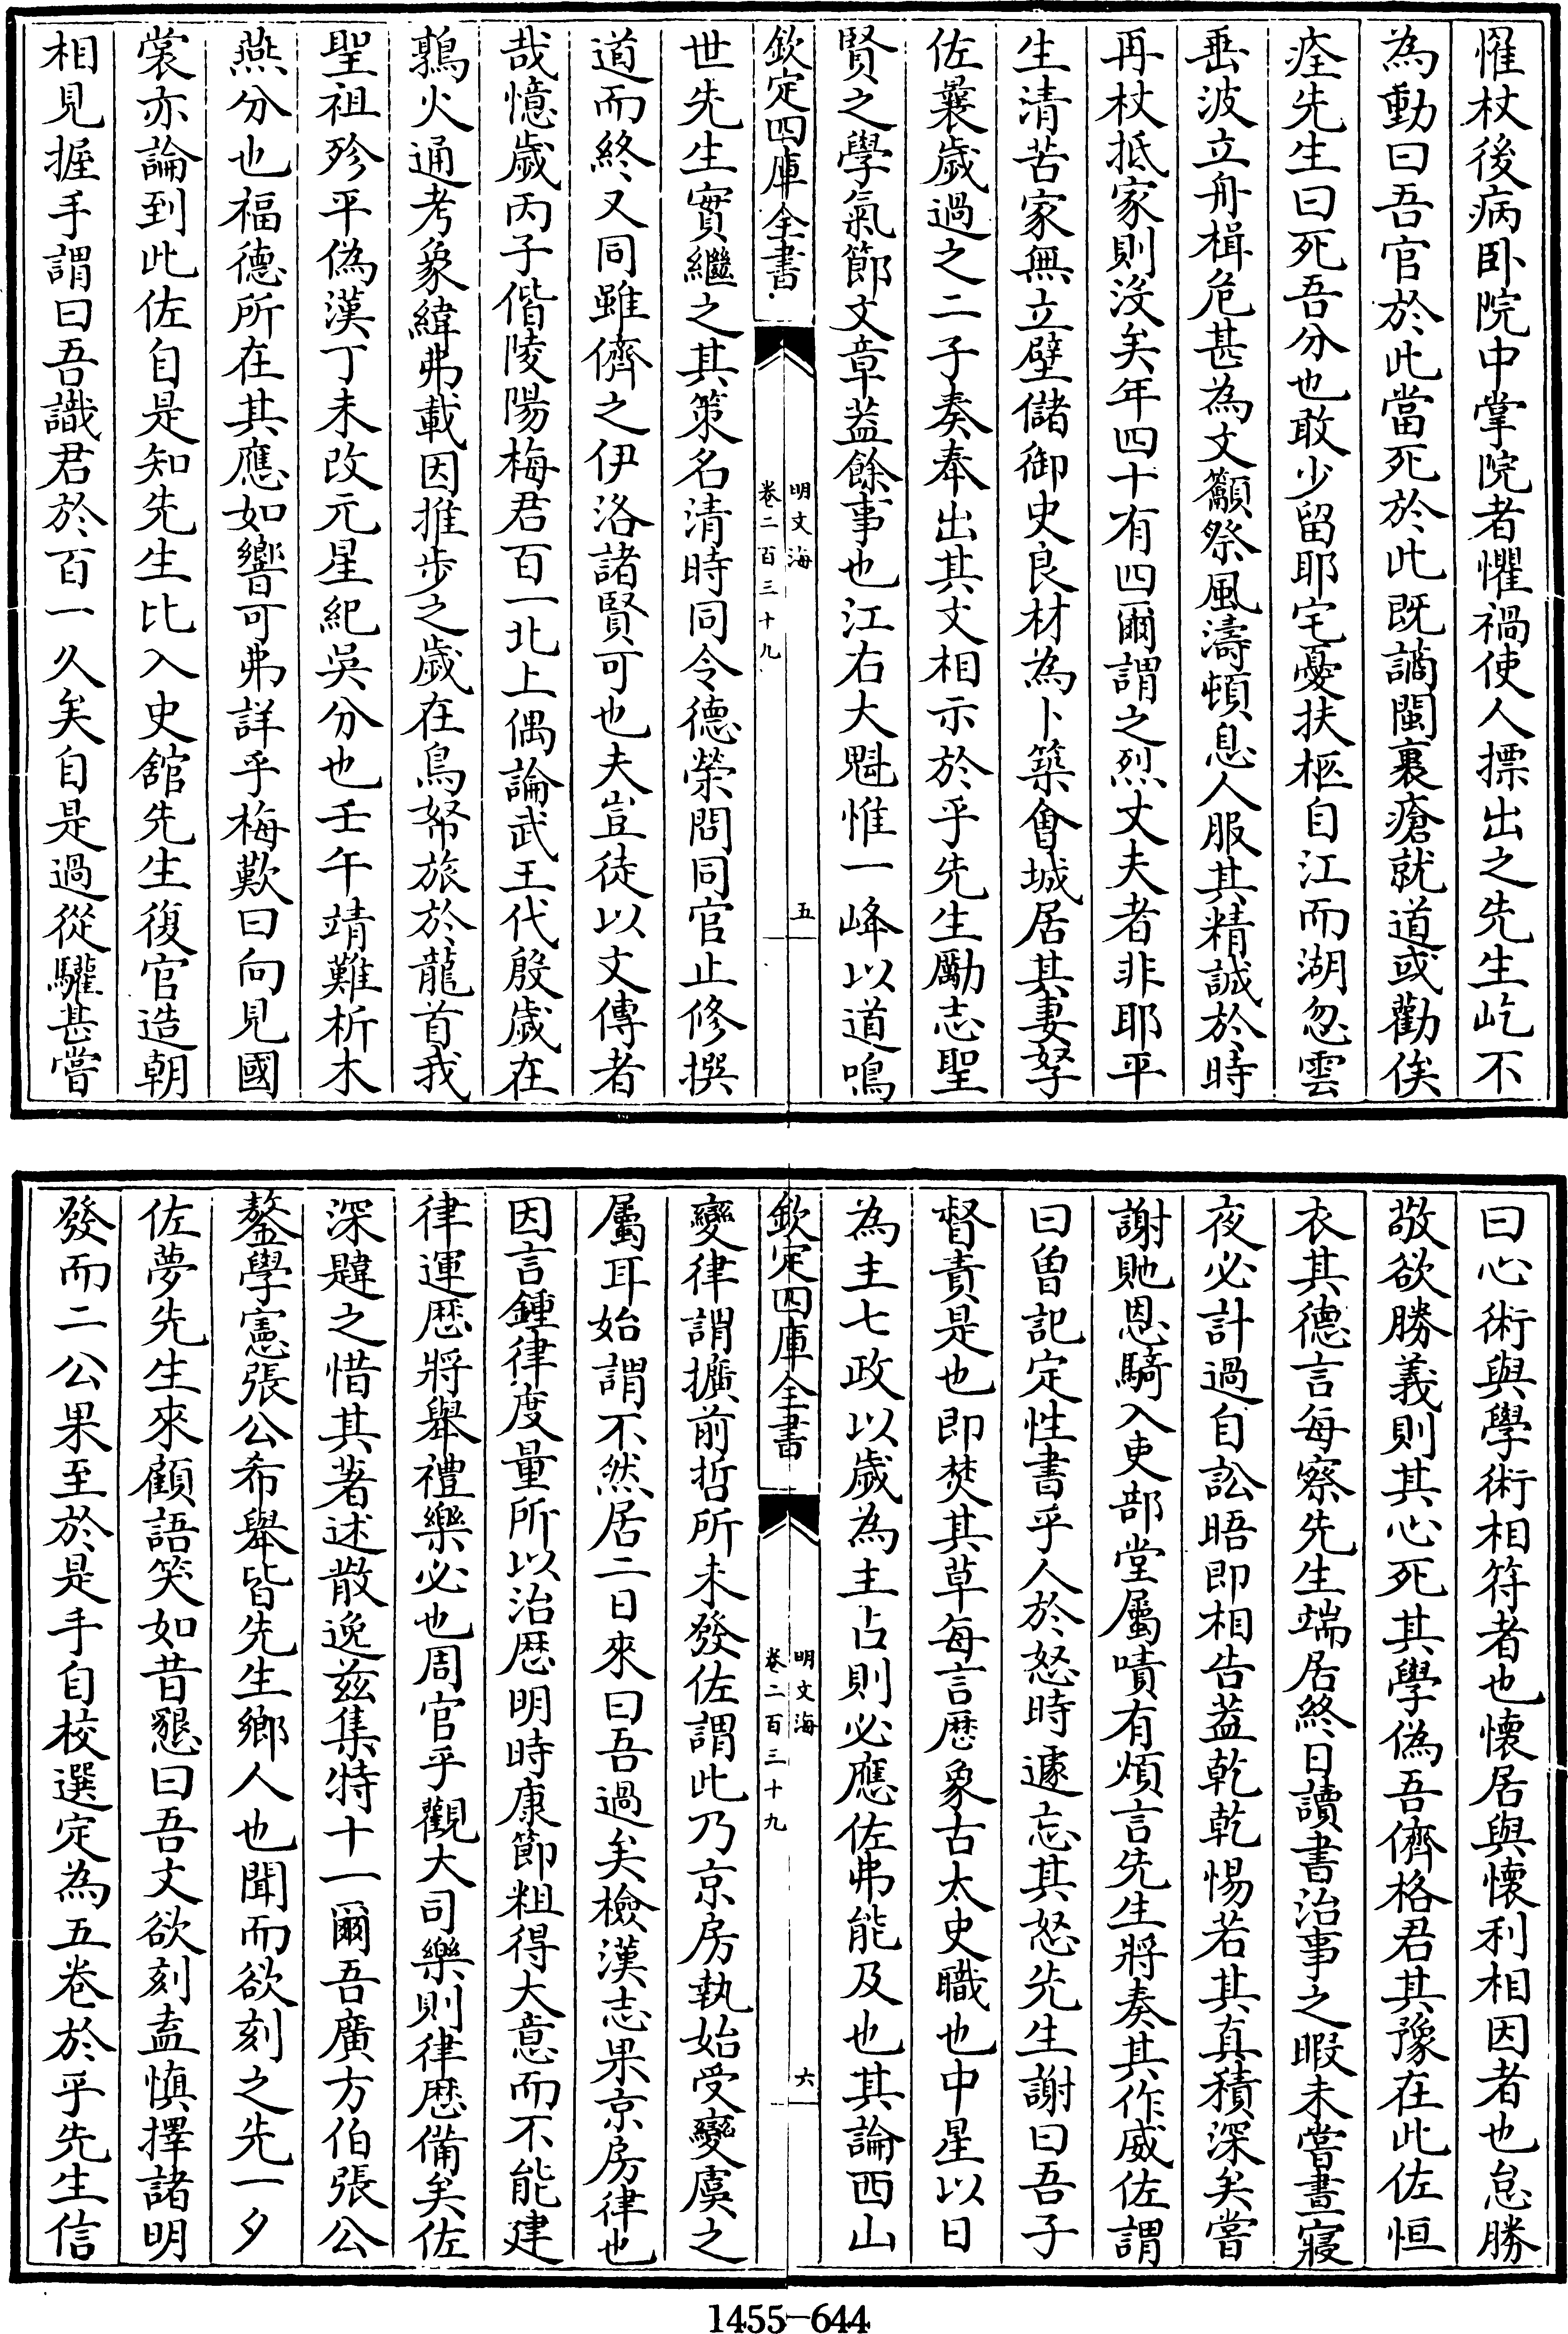 罹杖後病卧院中掌院者懼禍使人摽出之先生屹不
為動曰吾官於此當死於此既謫閩裹瘡就道或勸俟
痊先生曰死吾分也敢少留耶宅憂扶柩自江而湖忽雲
垂波立舟楫危甚為文籲祭風濤頓息人服其精誠於時
再杖抵家則没矣年四十有四爾謂之烈丈夫者非耶平
生清苦家無立壁儲御史良材為卜築會城居其妻孥
佐曩歲過之二子奏奉出其文相示於乎先生勵志聖
賢之學氣節文章益餘事也江右大魁惟一峰以道鳴
欽定四庫全書
明文海
卷二百三十九
五
世先生實繼之其策名清時同令德榮問同官止修撰
道而終又同雖儕之伊洛諸賢可也夫豈徒以文傳者
哉憶歲丙子偕陵陽梅君百一北上偶論武王代殷歲在
鶉火通考象緯弗載因推步之歲在鳥帑旅於龍首我
聖祖殄平偽漢丁未改元星紀吳分也壬午靖難析木
燕分也福德所在其應如響可弗詳乎梅歎曰向見國
裳亦論到此佐自是知先生比入史館先生復官造朝
相見握手謂曰吾識君於百一久矣自是過從驩甚嘗
曰心術與學術相符者也懷居與懷利相因者也怠勝
敬欲勝義則其心死其學偽吾儕格君其豫在此佐恒
衣其德言每察先生端居終日讀書治事之暇未嘗晝寢
夜必計過自訟晤即相告益乾乾惕若其真積深矣嘗
謝貤恩騎入吏部堂屬嘖有煩言先生將奏其作威佐謂
曰曽記定性書乎人於怒時遽忘其怒先生謝曰吾子
督責是也即焚其草每言厯象古太史職也中星以日
為主七政以歲為主占則必應佐弗能及也其論西山
欽定四庫全書
明文海
卷二百三十九
六
變律謂擴前哲所未發佐謂此乃京房執始受變虞之
屬耳始謂不然居二日來曰吾過矣檢漢志果京房律也
因言鍾律度量所以治厯明時康節粗得大意而不能建
律運厯將舉禮樂必也周官乎觀大司樂則律厯備矣佐
深韙之惜其著述散逸兹集特十一爾吾廣方伯張公
鏊學憲張公希舉皆先生鄉人也聞而欲刻之先一夕
佐夢先生來顧語笑如昔懇曰吾文欲刻盍慎擇諸明
發而二公果至於是手自校選定為五卷於乎先生信
1455-644